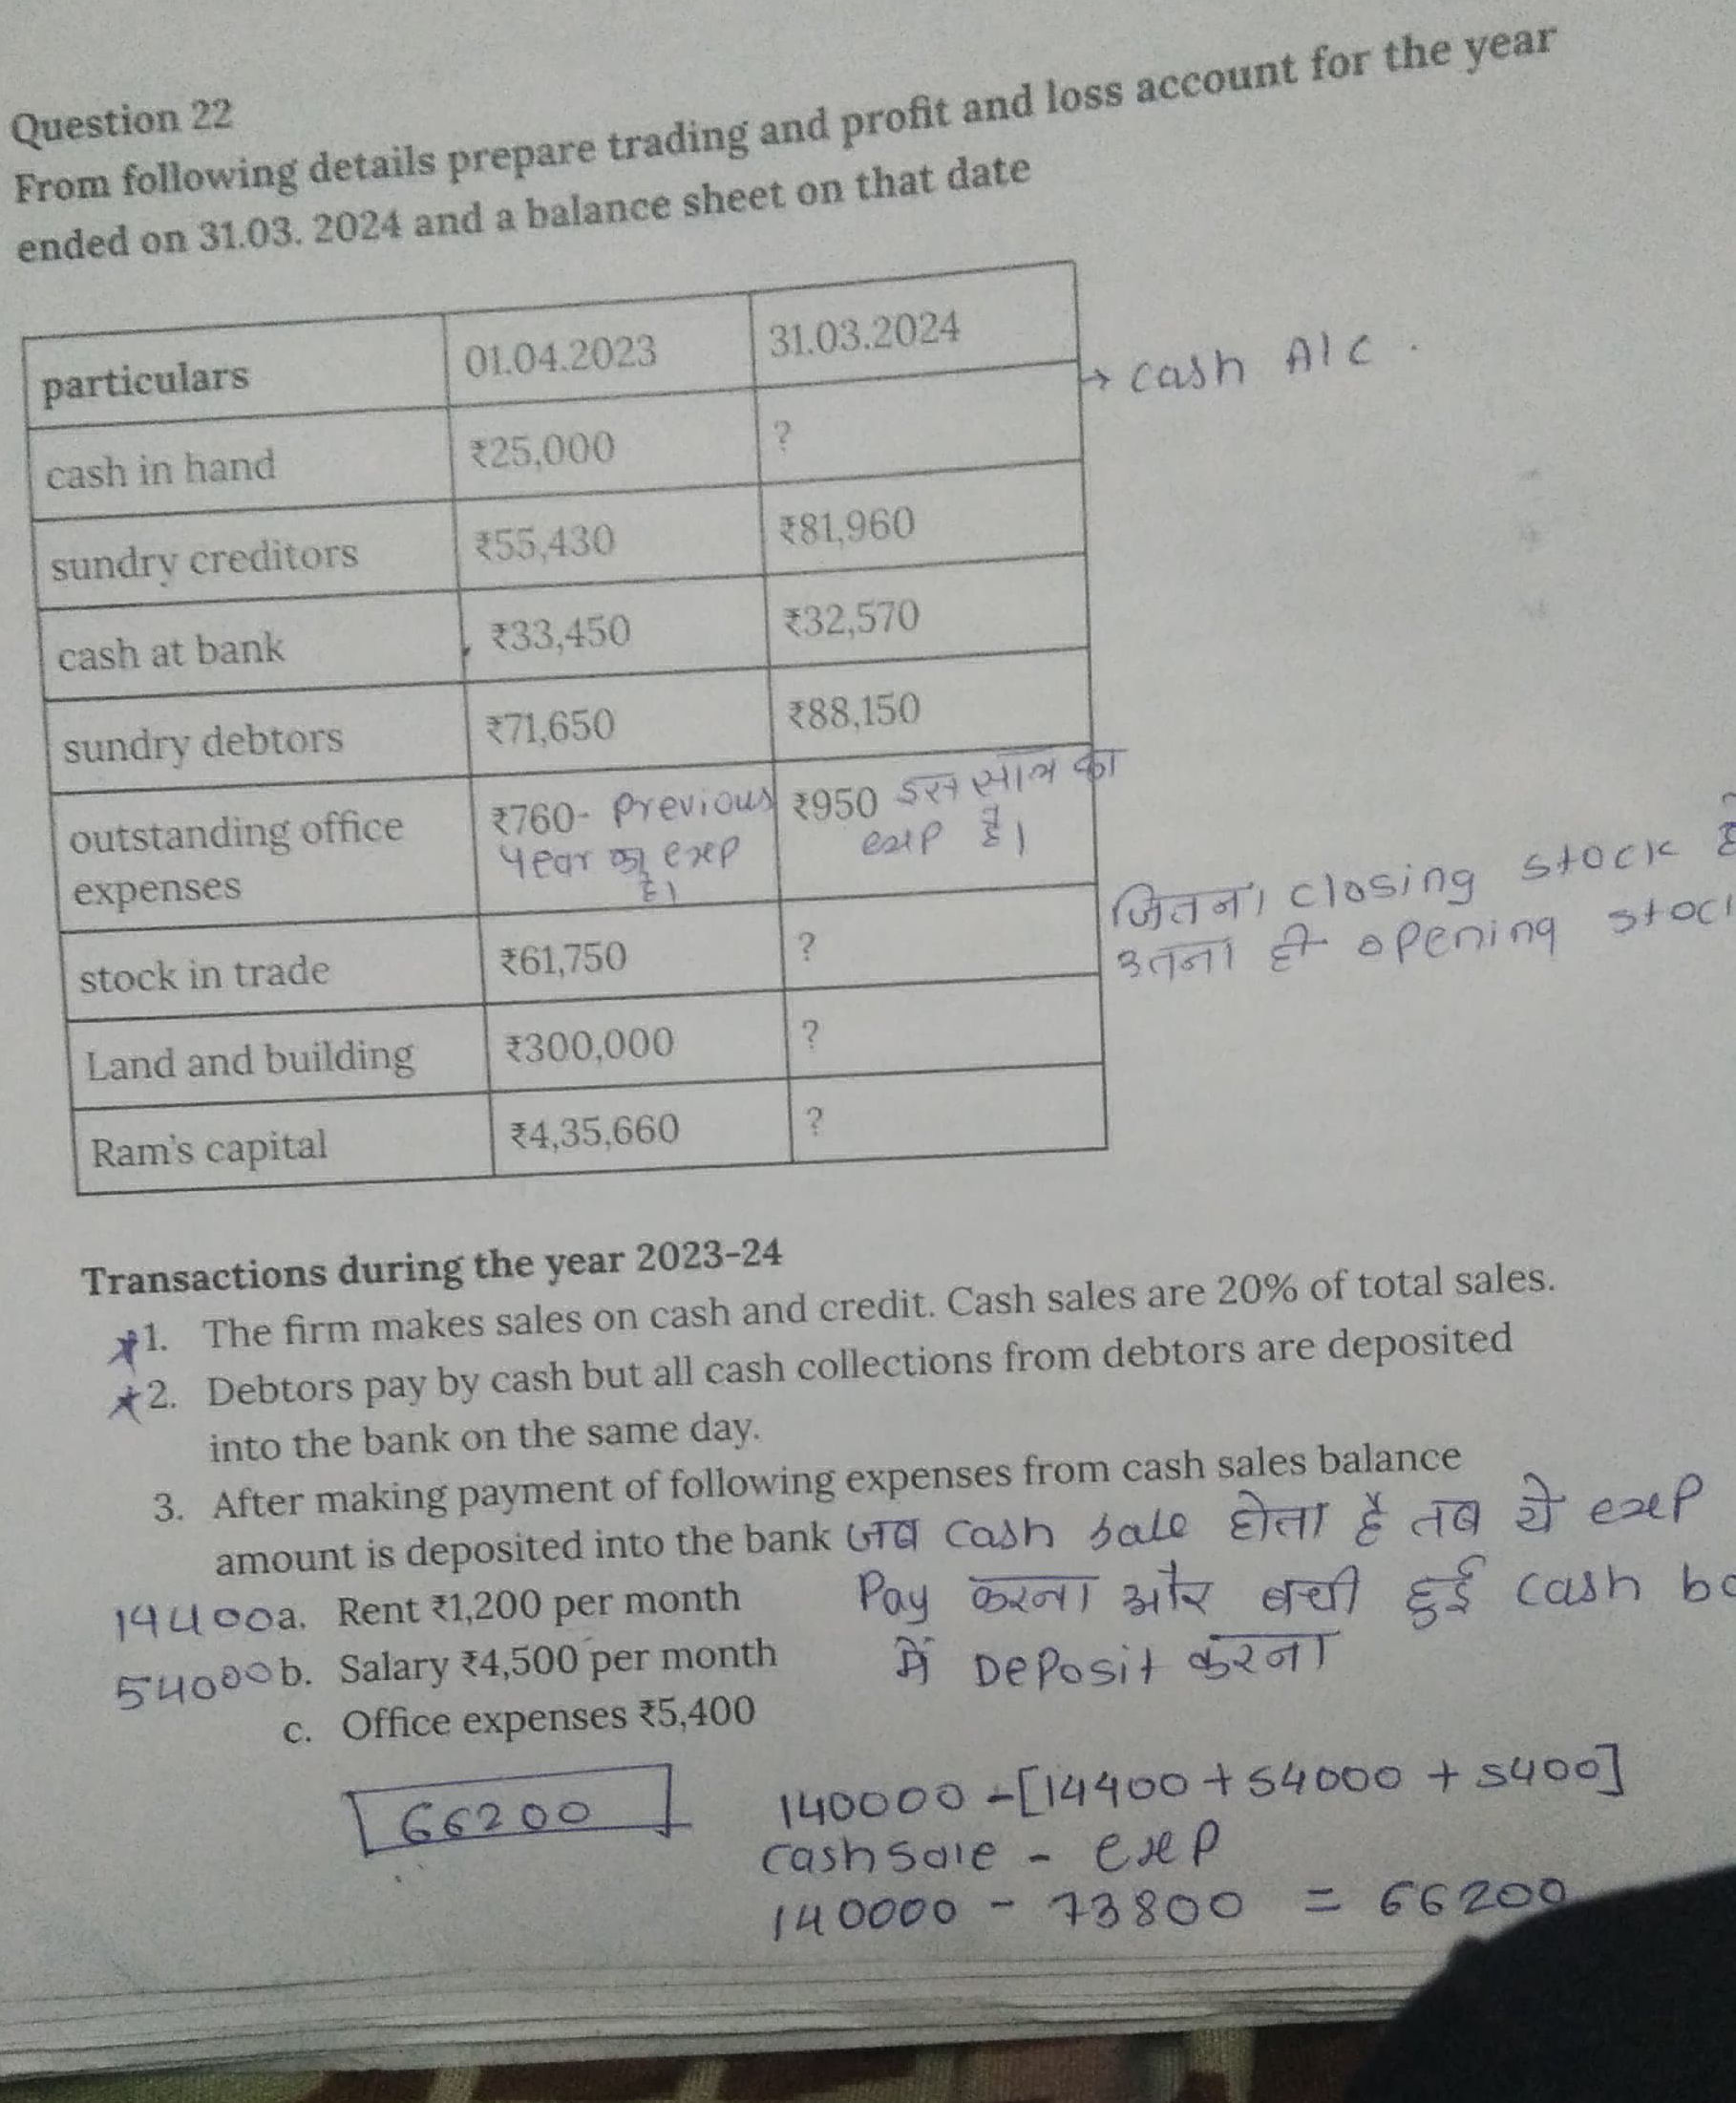 Question 22
From following details prepare trading and profit and loss account for the year
ended on 31.03. 2024 and a balance sheet on that date
particulars 01.04.2023 31.03.2024
→ cash A/C .
cash in hand ₹25,000 ?
sundry creditors ₹55,430 ₹81,960
cash at bank ₹33,450 ₹32,570
sundry debtors ₹71,650 ₹88,150
outstanding office ₹760- Previous ₹950 इस साल का
expenses year का exp exp है।
है।
जितना closing stock
उतना ही opening
stock in trade ₹61,750 ?
Land and building ₹300,000 ?
Ram's capital ₹4,35,660 ?
Transactions during the year 2023-24
1. The firm makes sales on cash and credit. Cash sales are 20% of total sales.
2. Debtors pay by cash but all cash collections from debtors are deposited
into the bank on the same day.
3. After making payment of following expenses from cash sales balance
amount is deposited into the bank जब cash sale होता है तब ये exp
14400 a. Rent ₹1,200 per month Pay करना और बची हुई cash
54000 b. Salary ₹4,500 per month में Deposit करना
c. Office expenses ₹5,400
66200 140000 - [14400 + 54000 + 5400]
cash sale - exp
140000 - 73800 = 66200